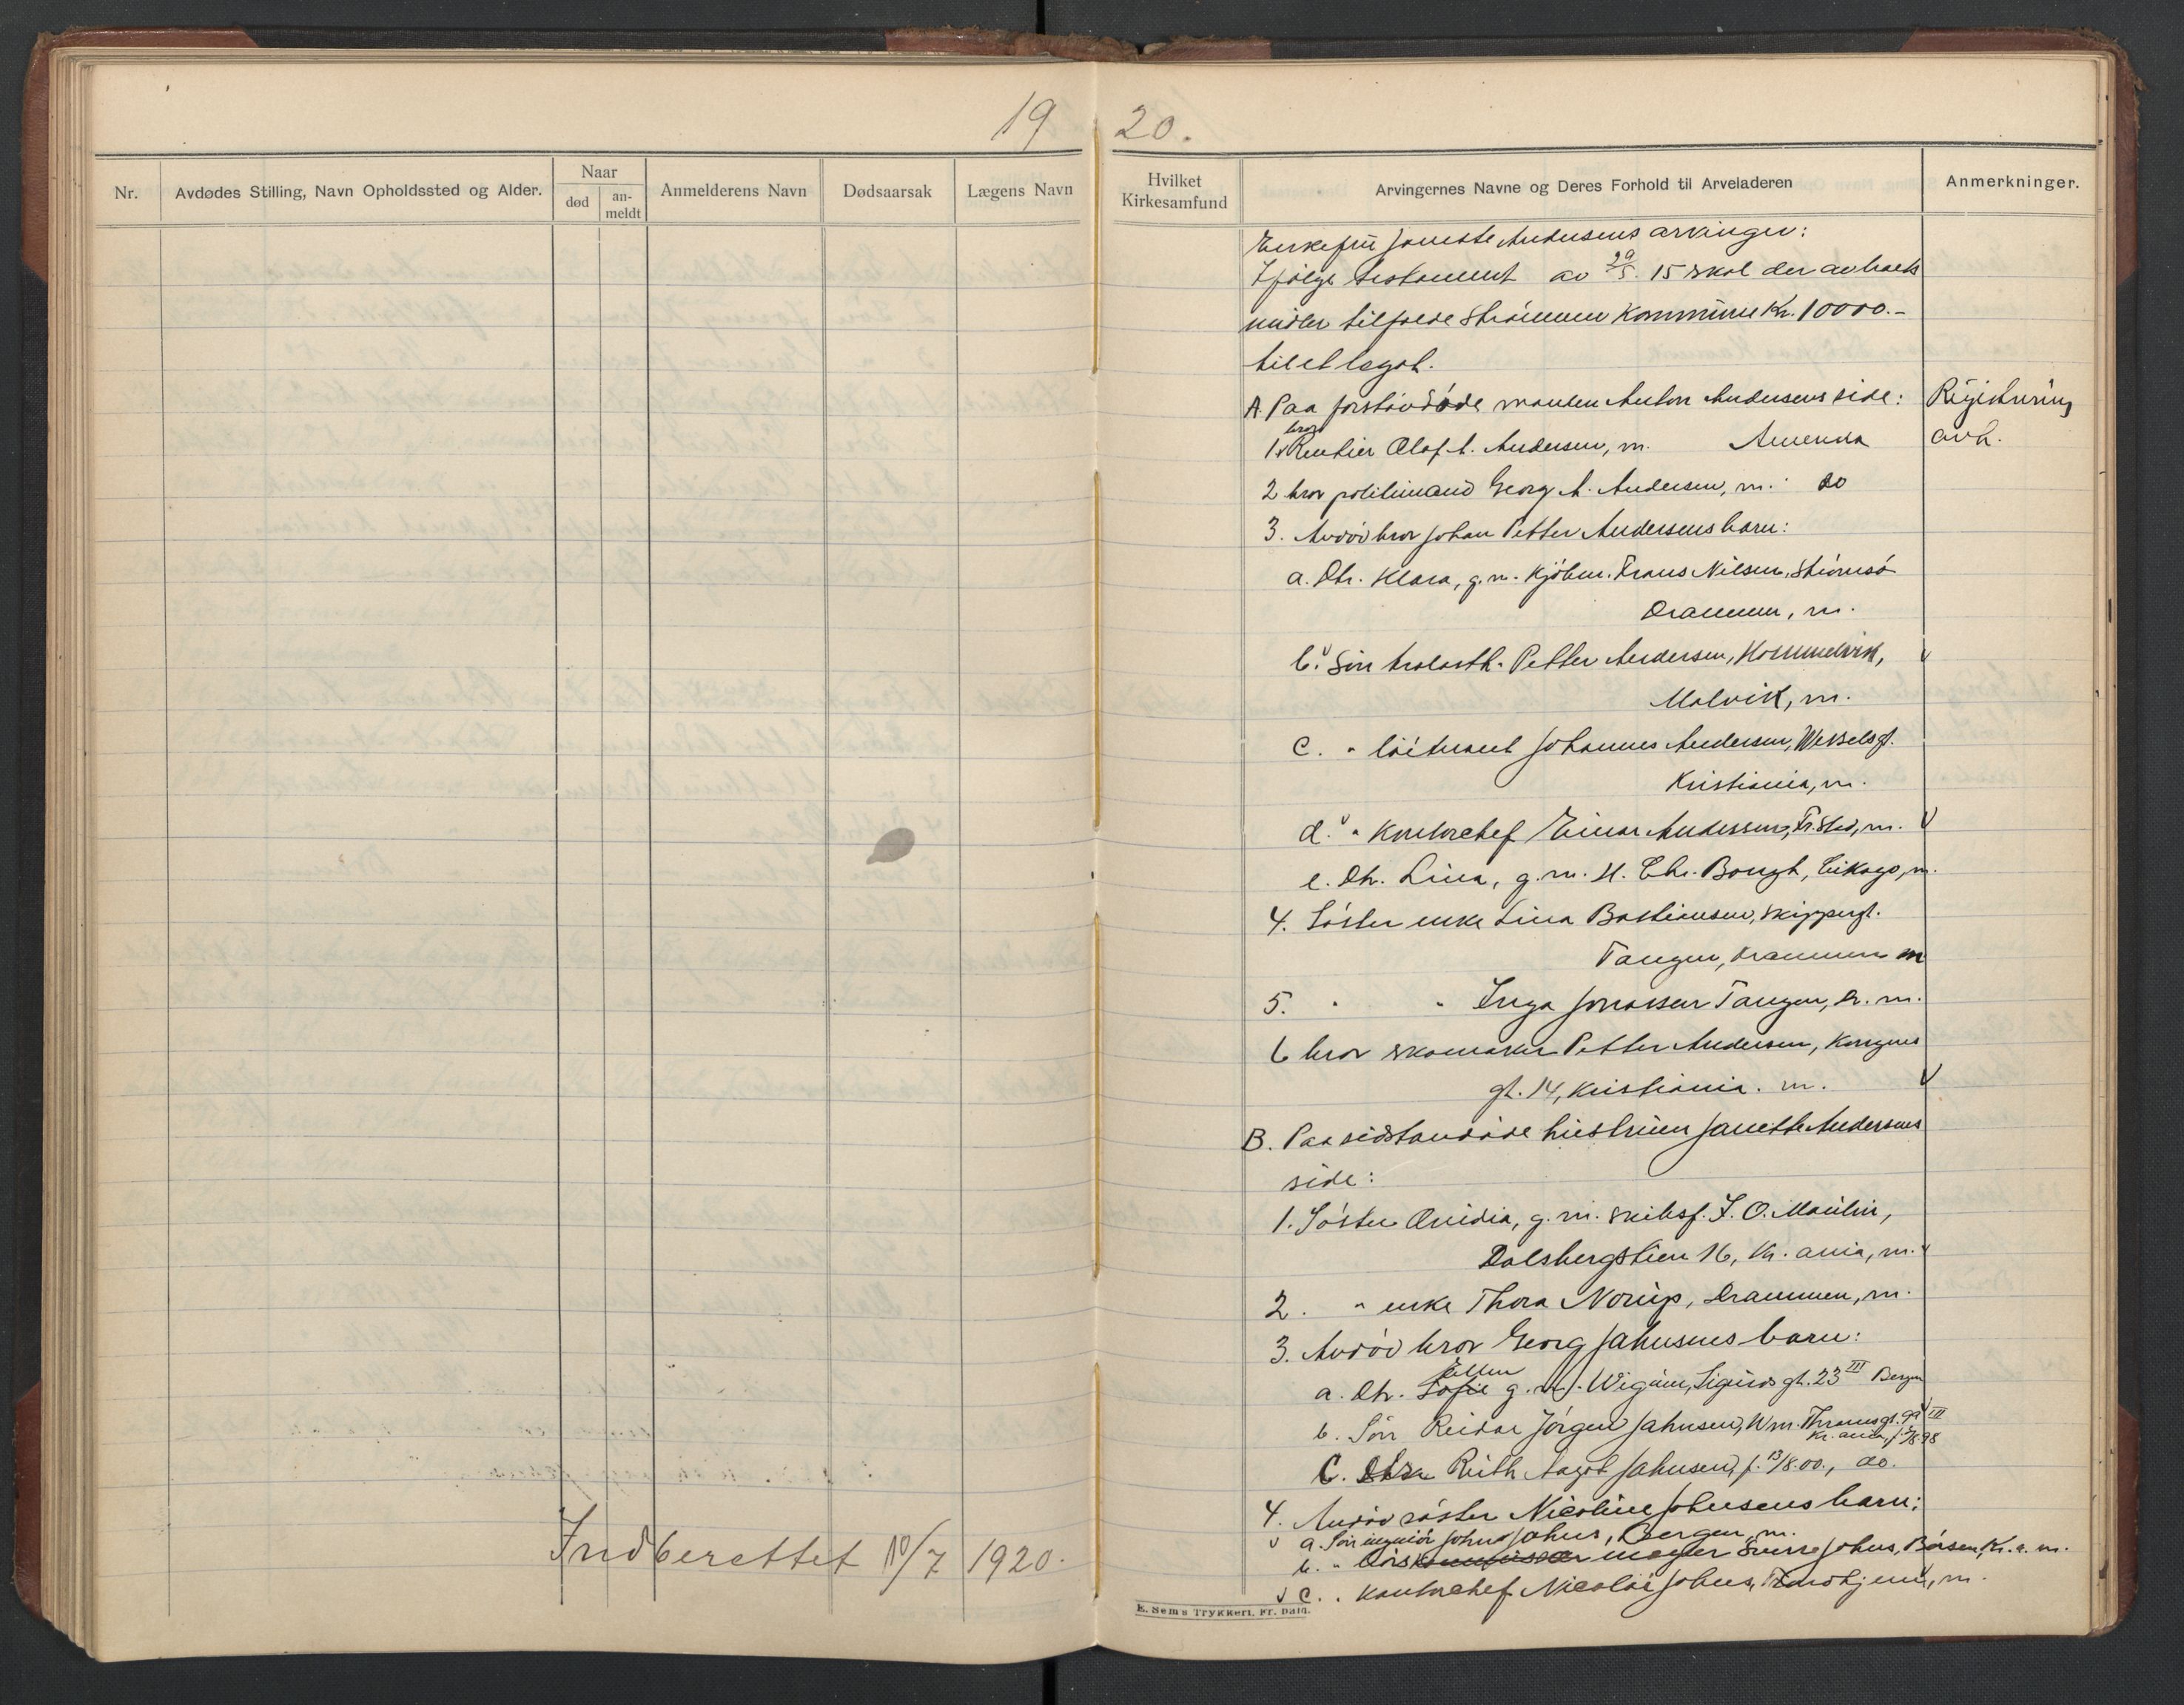 19 20.
Nr.
Avdødes Stilling, Navn Opholdssted og Alder.
Naar
død
an-
meldt
Anmelderens Navn
Dødsaarsak
Lægens Navn
Indberettet 10/7 1920.
Hvilket
Kirkesamfund
Arvingernes Navne og Deres Forhold til Arveladeren
Anmerkninger.
Enkefru Janette Andersens arvinger:
Ifølge testament av 29/5. 15 skal der av boets
midler tilfalde Strømmen Kommune Kr. 10000.-
til et legat.
A. Paa førstavdøde manden Anton Andersens side: Registrering
bror
1. Rentier Olaf A. Andersen, m. Amerika avh.
2 bror politimand Georg A. Andersen, m. do
3. Avdød bror Johan Petter Andersens barn:
a. Dtr. Klara, g. m. Kjøbm. Frans Nilsen, Strømsø
Drammen, m.
b. Søn Petter Andersen, Hommelvik,
Malvik, m.
c. " løitnant Johannes Andersen, Wesselsgt.
Kristiania, m.
d. " Kontorchef Einar Anderssen, Fr.stad, m.
e. Dtr. Lina, g. m. H. Chr. Bough, Cikago, m.
4. Søster enke Lina Bastiansen, Skippergt.
Tangen, Drammen m
5. " " Inga Jonassen Tangen, Dr. m.
6 bror skomaker Petter Andersen, Kongens
gt. 14, Kristiania. m.
B. Paa sidstavdøde hustruen Janette Andersens
side:
1. Søster Ovidia, g. m. skibsf. F. O. Maulin,
Dalsbergstien 16, Kr. ania, m.
2. " enke Thora Norup, Drammen, m.
3. Avdød bror Georg Jahnsens barn:
Ellen
a. Dtr. Sofie g. m. J. Wigum, Sigurds gt. 23 III Bergen
b. Søn Reidar Jørgen Jahnsen, Wm. Thranesgt. III
Kr. ania, f.
c. Dtr. Ruth Aagot Jahnsen, f. 13/8.00., do.
4. Avdød søster Nicoline Johnsens barn:
a. Søn ingeniør John Johns, Bergen, m.
b. " mægler Sverre Johns, Børsen, Kr. a. m.
c. . Kontorchef Nicolai Johns, Trondhjem, m.
E. Sem's Trykkeri, Fr. hald.